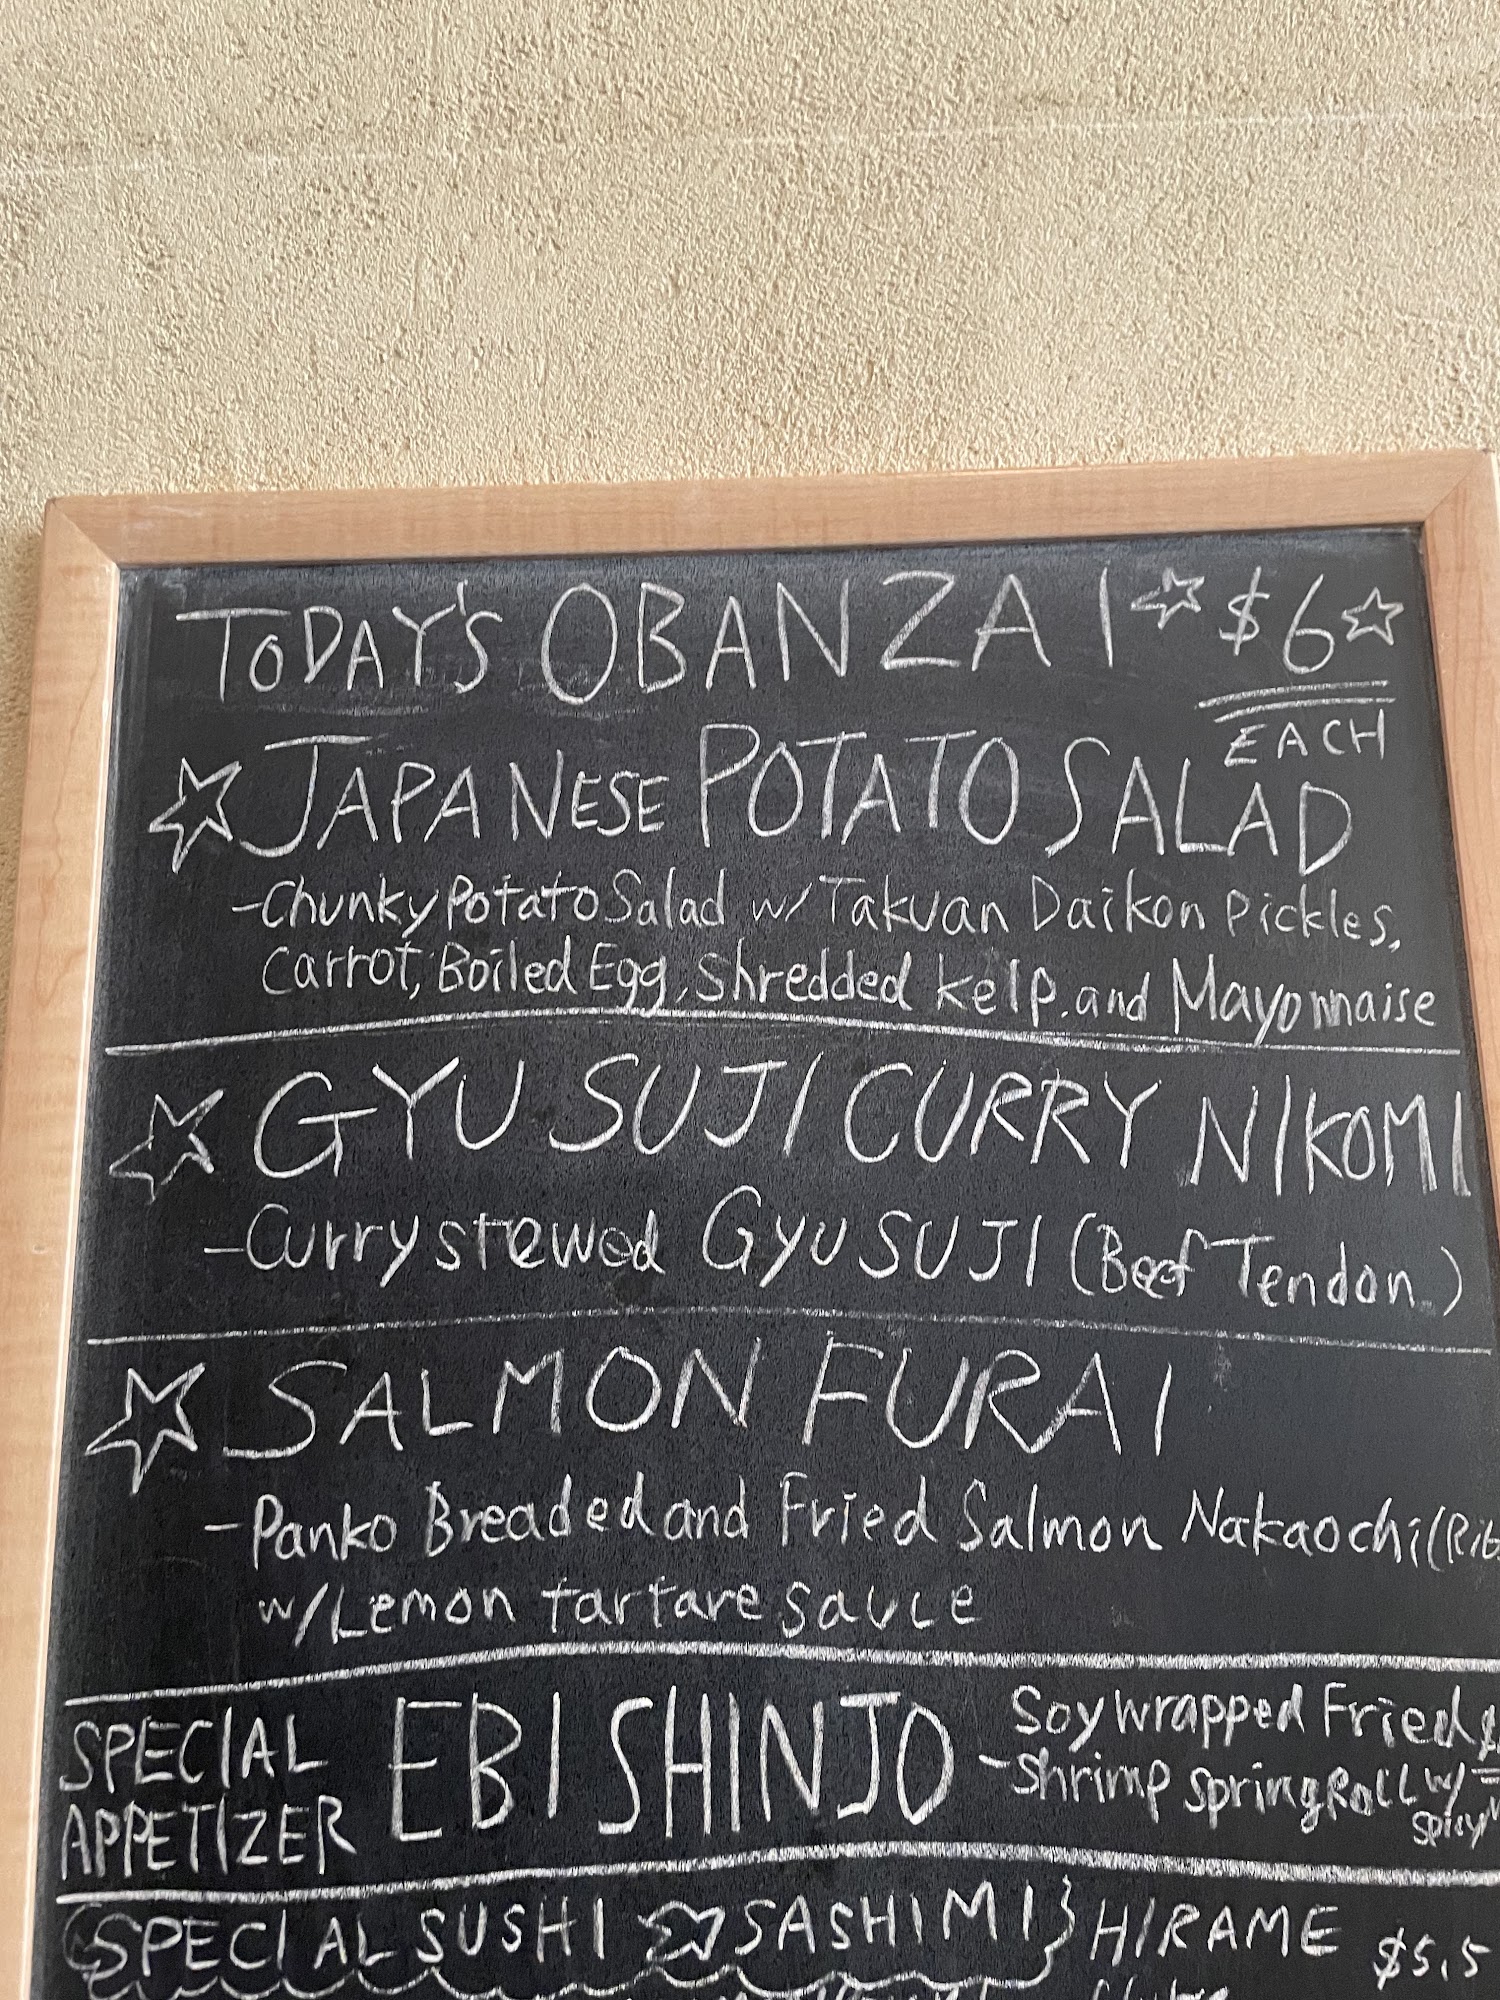 TODAY'S OBANZAI ☆ $6 ☆
EACH
☆ JAPANESE POTATO SALAD
-Chunky Potato Salad w/ Takuan Daikon Pickles,
Carrot, Boiled Egg, Shredded Kelp. and Mayonnaise
☆ GYU SUJI CURRY NIKOMI
-Curry stewed GyU SUJI (Beef Tendon)
☆ SALMON FURAI
-Panko Breaded and Fried Salmon Nakaochi (Rib
w/Lemon tartare sauce
SPECIAL
APPETIZER
EBI SHINJO
-Soy wrapped Fried
Shrimp Spring Roll w/
Spicy
SPECIAL SUSHI ☆ SASHIMI} HIRAME $5.5